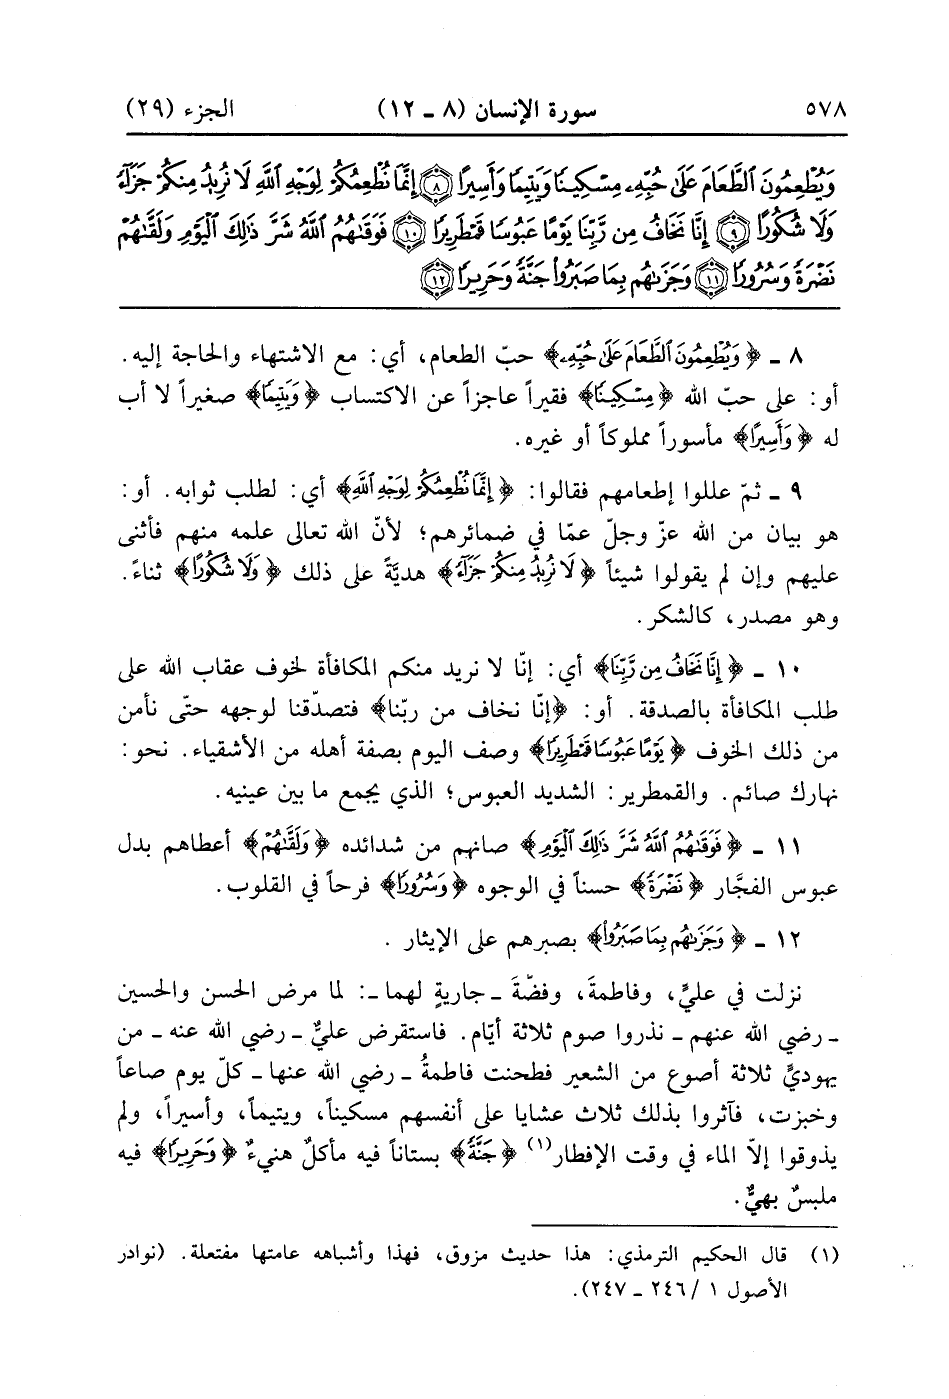 ٥٧٨ سورة الإنسان (٨ ـ ١٢) الجزء (٢٩)
وَيُطْعِمُونَ ٱلطَّعَامَ عَلَىٰ حُبِّهِۦ مِسْكِينًا وَيَتِيمًا وَأَسِيرًا ﴿٨﴾ إِنَّمَا نُطْعِمُكُمْ لِوَجْهِ ٱللَّهِ لَا نُرِيدُ مِنكُمْ جَزَآءً
وَلَا شُكُورًا ﴿٩﴾ إِنَّا نَخَافُ مِن رَّبِّنَا يَوْمًا عَبُوسًا قَمْطَرِيرًا ﴿١٠﴾ فَوَقَىٰهُمُ ٱللَّهُ شَرَّ ذَٰلِكَ ٱلْيَوْمِ وَلَقَّىٰهُمْ
نَضْرَةً وَسُرُورًا ﴿١١﴾ وَجَزَىٰهُم بِمَا صَبَرُوا۟ جَنَّةً وَحَرِيرًا ﴿١٢﴾
٨ ـ ﴿وَيُطْعِمُونَ ٱلطَّعَامَ عَلَىٰ حُبِّهِۦ﴾ حبّ الطعام، أي: مع الاشتهاء والحاجة إليه.
أو: على حبّ الله ﴿مِسْكِينًا﴾ فقيراً عاجزاً عن الاكتساب ﴿وَيَتِيمًا﴾ صغيراً لا أب
له ﴿وَأَسِيرًا﴾ مأسوراً مملوكاً أو غيره.
٩ ـ ثمّ عللوا إطعامهم فقالوا: ﴿إِنَّمَا نُطْعِمُكُمْ لِوَجْهِ ٱللَّهِ﴾ أي: لطلب ثوابه. أو:
هو بيان من الله عزّ وجلّ عمّا في ضمائرهم؛ لأنّ الله تعالى علمه منهم فأثنى
عليهم وإن لم يقولوا شيئاً ﴿لَا نُرِيدُ مِنكُمْ جَزَآءً﴾ هديّةً على ذلك ﴿وَلَا شُكُورًا﴾ ثناءً.
وهو مصدر، كالشكر.
١٠ ـ ﴿إِنَّا نَخَافُ مِن رَّبِّنَا﴾ أي: إنّا لا نريد منكم المكافأة لخوف عقاب الله على
طلب المكافأة بالصدقة. أو: ﴿إنّا نخاف من ربّنا﴾ فتصدّقنا لوجهه حتّى نأمن
من ذلك الخوف ﴿يَوْمًا عَبُوسًا قَمْطَرِيرًا﴾ وصف اليوم بصفة أهله من الأشقياء. نحو:
نهارك صائم. والقمطرير: الشديد العبوس؛ الذي يجمع ما بين عينيه.
١١ ـ ﴿فَوَقَىٰهُمُ ٱللَّهُ شَرَّ ذَٰلِكَ ٱلْيَوْمِ﴾ صانهم من شدائده ﴿وَلَقَّىٰهُمْ﴾ أعطاهم بدل
عبوس الفجَّار ﴿نَضْرَةً﴾ حسناً في الوجوه ﴿وَسُرُورًا﴾ فرحاً في القلوب.
١٢ ـ ﴿وَجَزَىٰهُم بِمَا صَبَرُوا۟﴾ بصبرهم على الإيثار .
نزلت في عليٍّ، وفاطمةَ، وفضّةَ ـ جاريةٍ لهما ـ: لما مرض الحسن والحسين
ـ رضي الله عنهم ـ نذروا صوم ثلاثة أيّام. فاستقرض عليٌّ ـ رضي الله عنه ـ من
يهوديٍّ ثلاثة أصوع من الشعير فطحنت فاطمةُ ـ رضي الله عنها ـ كلّ يوم صاعاً
وخبزت، فآثروا بذلك ثلاث عشايا على أنفسهم مسكيناً، ويتيماً، وأسيراً، ولم
يذوقوا إلاّ الماء في وقت الإفطار(١) ﴿جَنَّةً﴾ بستاناً فيه مأكلٌ هنيءٌ ﴿وَحَرِيرًا﴾ فيه
ملبسٌ بهيٌّ.
(١) قال الحكيم الترمذي: هذا حديث مزوق، فهذا وأشباهه عامتها مفتعلة. (نوادر
الأصول ١/ ٢٤٦ ـ ٢٤٧).